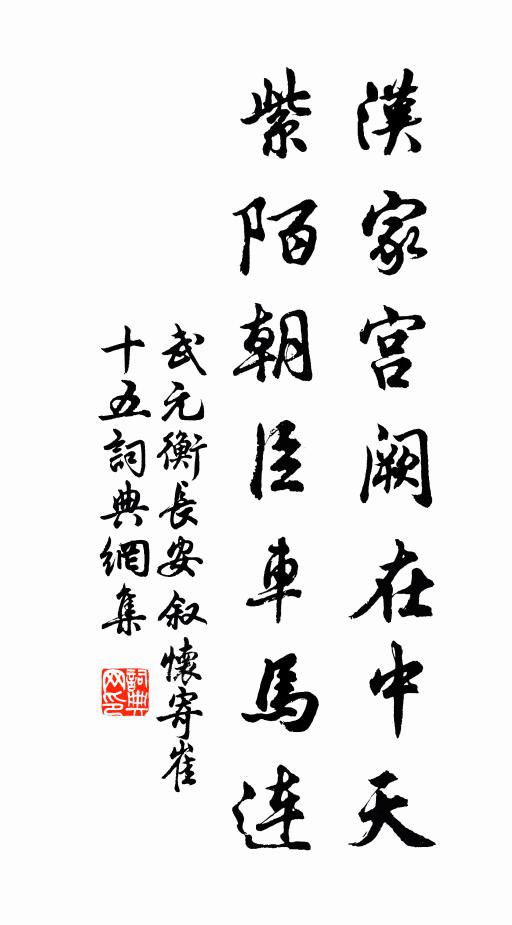 漢家宫阙在中天
紫陌朝臣車馬連
武元衡長安叙懷寄崔
十五詞典網集
詞典網印